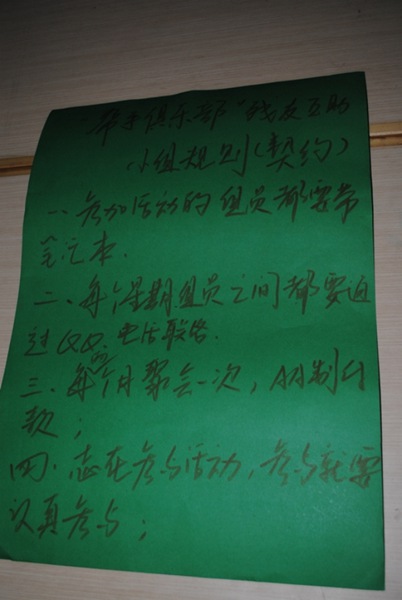 “帮手俱乐部”残友互助
小组规则(契约)
一、参加活动的组员都要带
笔记本.
二、每个星期组员之间都要通
过QQ、电话联络.
三、每两个月聚会一次，AA制付
款；
四、志在参与活动，参与就要
认真参与；